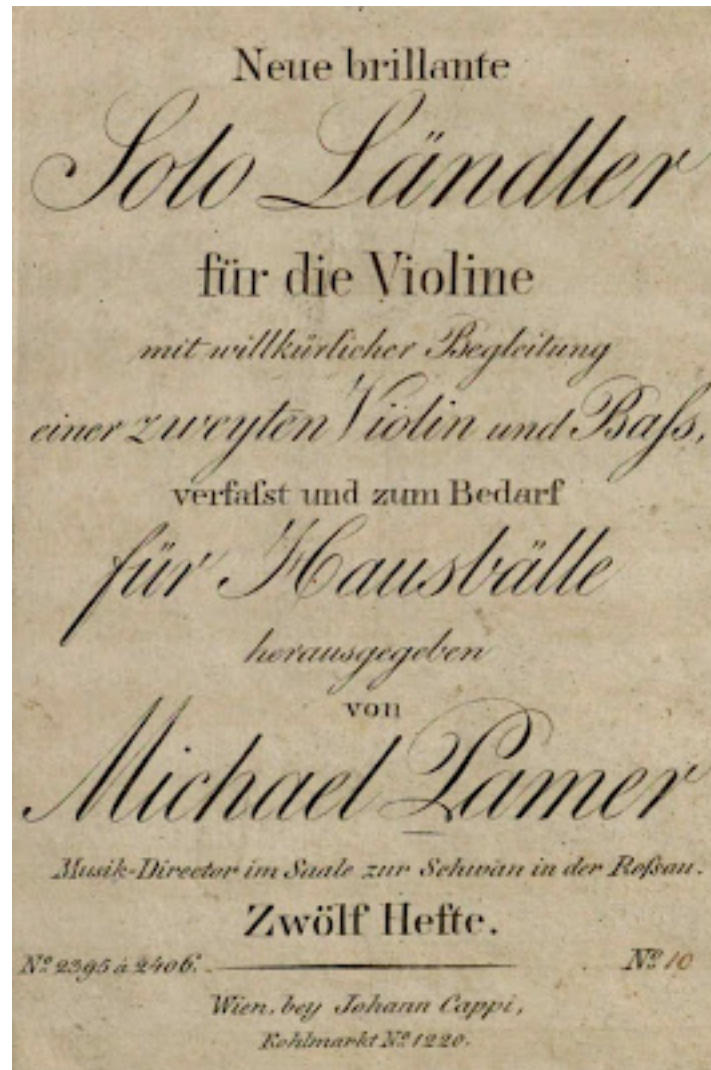 Neue brillante
Solo Ländler
für die Violine
mit willkürlicher Begleitung
einer zweyten Violin und Baſs,
verfaſst und zum Bedarf
für Hausbälle
herausgegeben
von
Michael Pamer
Musik-Director im Saale zur Schwan in der Roſsau.
Zwölf Hefte.
Nº 2395 à 2406.
Nº 10
Wien, bey Johann Cappi,
Kohlmarkt Nº 1220.